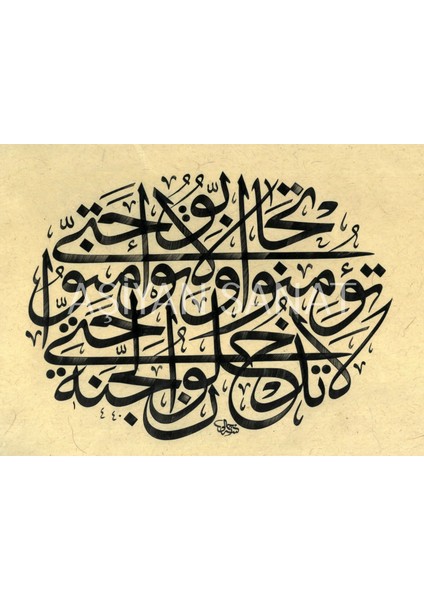 لا تدخلون الجنة حتى
تؤمنوا ولا تؤمنوا حتى
تحابوا
AŞİYAN SANAT